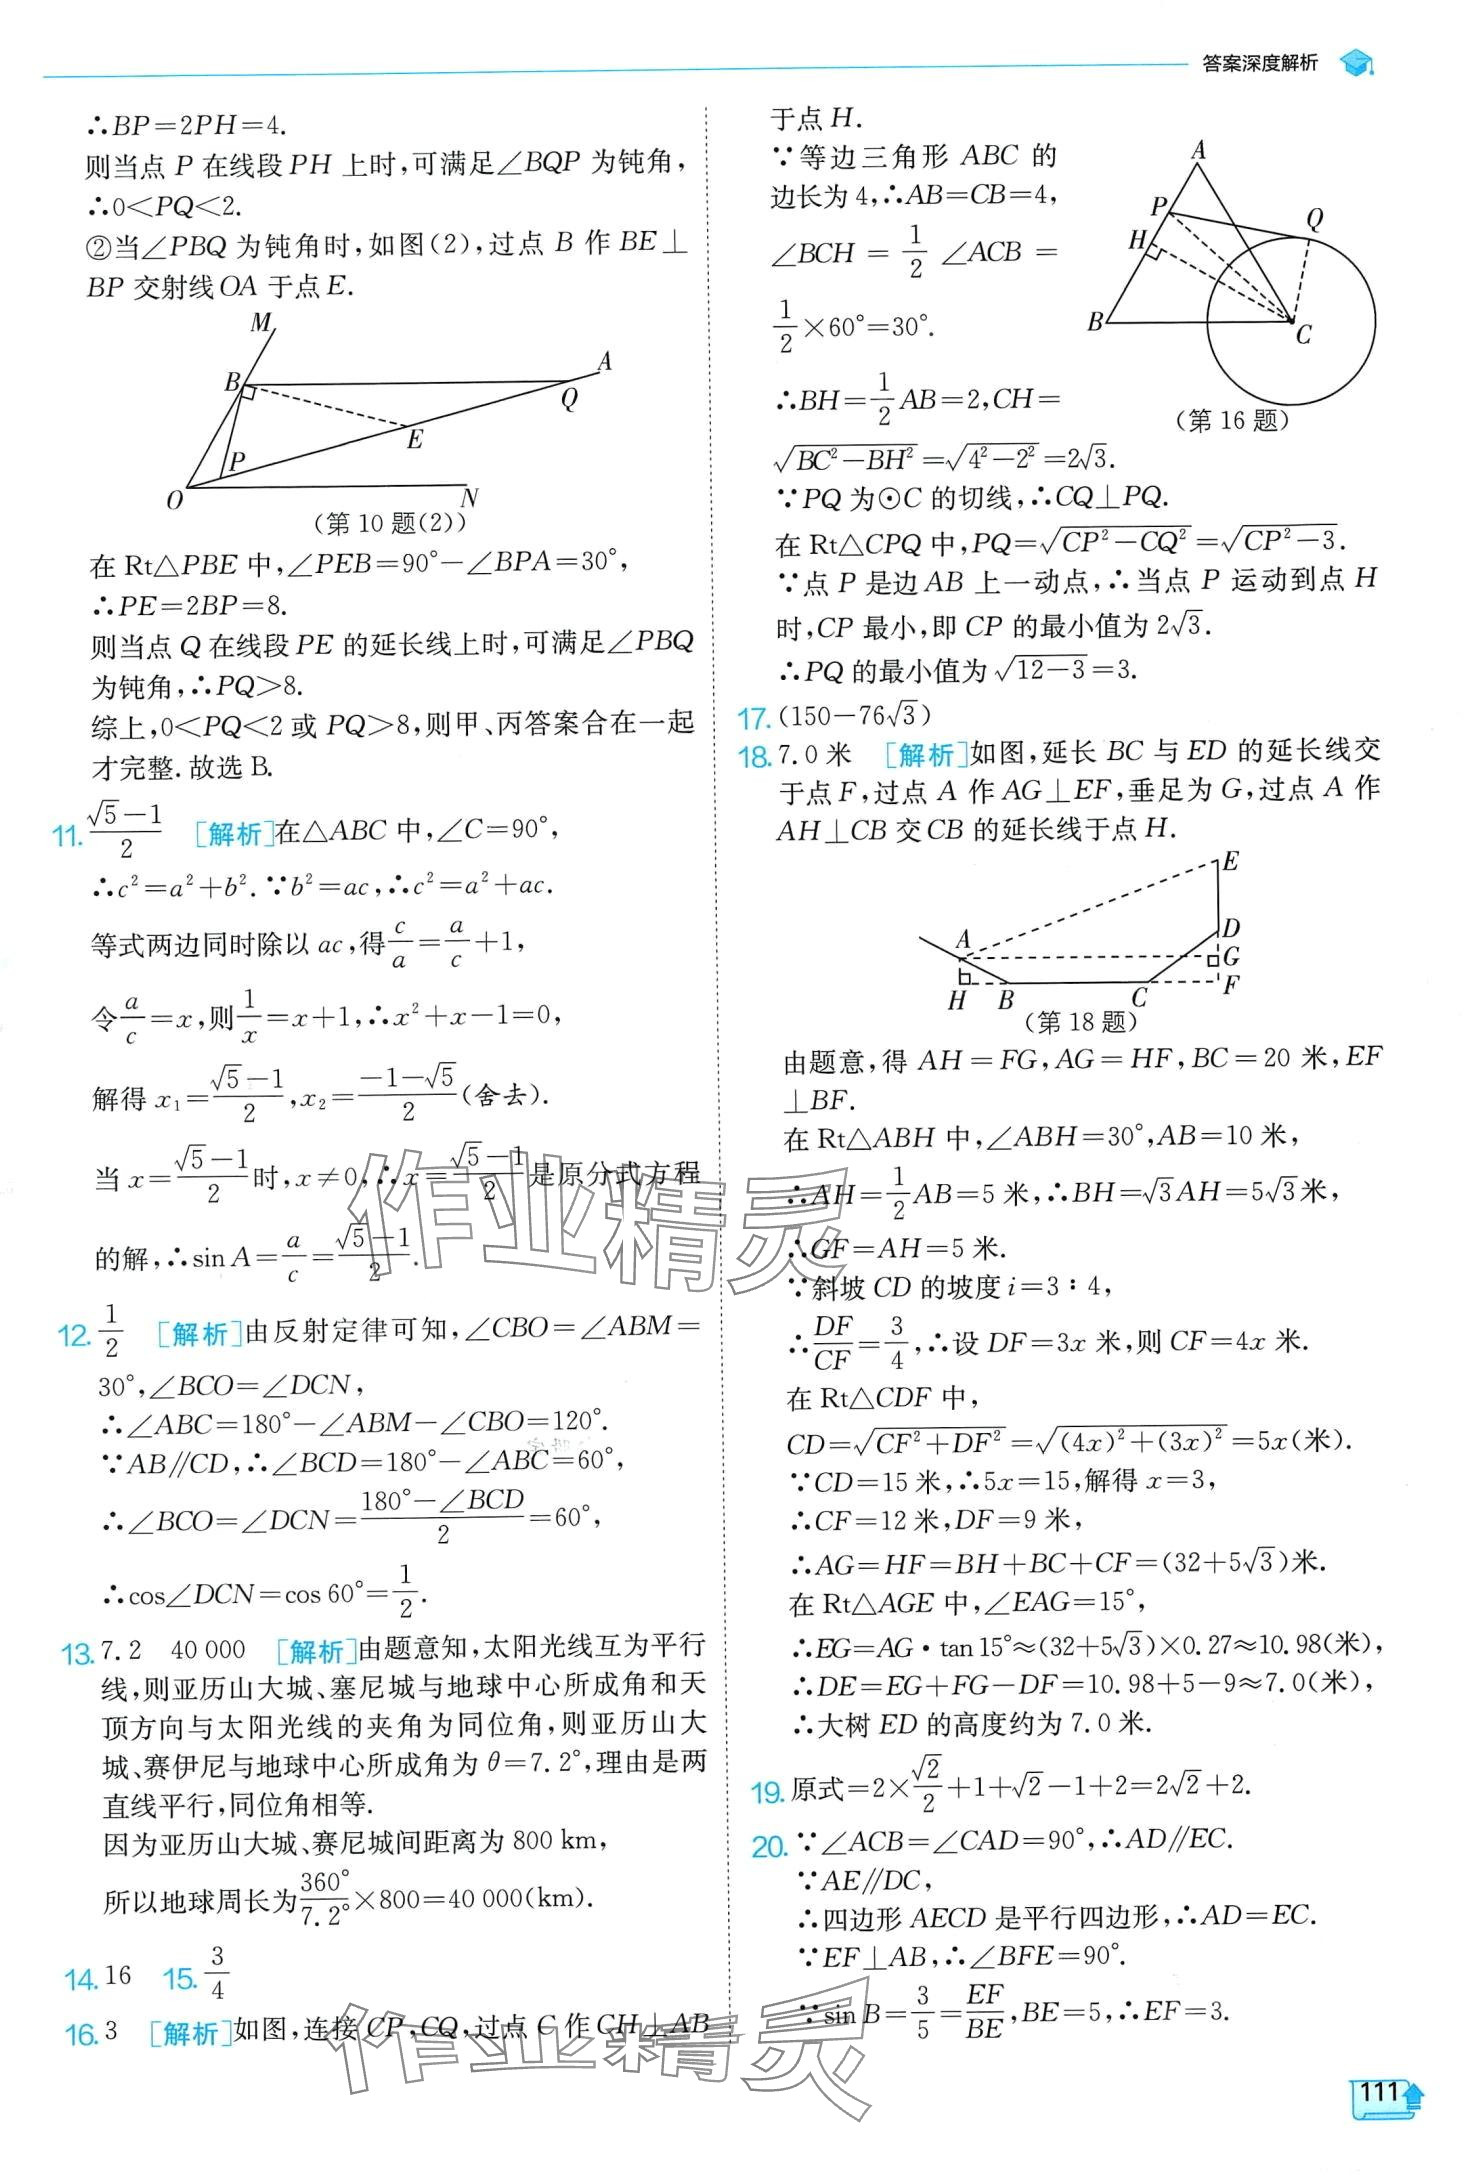 答案深度解析
∴BP=2PH=4.
则当点 P 在线段 PH 上时,可满足∠BQP 为钝角,
∴0<PQ<2.
②当∠PBQ 为钝角时,如图(2),过点 B 作 BE⊥
BP 交射线 OA 于点 E.
M
A
B
Q
E
P
O
N
(第 10 题(2))
在 Rt△PBE 中,∠PEB=90°-∠BPA=30°,
∴PE=2BP=8.
则当点 Q 在线段 PE 的延长线上时,可满足∠PBQ
为钝角,∴PQ>8.
综上,0<PQ<2 或 PQ>8,则甲、丙答案合在一起
才完整.故选 B.
11. (√5-1)/2 [解析]在△ABC 中,∠C=90°,
∴c²=a²+b².∵b²=ac,∴c²=a²+ac.
等式两边同时除以 ac,得c/a=a/c+1,
令a/c=x,则1/x=x+1,∴x²+x-1=0,
解得 x₁=(√5-1)/2,x₂=(-1-√5)/2(舍去).
当 x=(√5-1)/2时,x≠0,∴x=(√5-1)/2是原分式方程
的解,∴sin A=a/c=(√5-1)/2.
12. 1/2 [解析]由反射定律可知,∠CBO=∠ABM=
30°,∠BCO=∠DCN,
∴∠ABC=180°-∠ABM-∠CBO=120°.
∵AB∥CD,∴∠BCD=180°-∠ABC=60°,
∴∠BCO=∠DCN=(180°-∠BCD)/2=60°,
∴cos∠DCN=cos 60°=1/2.
13. 7.2 40 000 [解析]由题意知,太阳光线互为平行
线,则亚历山大城、塞尼城与地球中心所成角和天
顶方向与太阳光线的夹角为同位角,则亚历山大
城、赛伊尼与地球中心所成角为 θ=7.2°,理由是两
直线平行,同位角相等.
因为亚历山大城、赛尼城间距离为 800 km,
所以地球周长为360°/7.2°×800=40 000(km).
14. 16 15. 3/4
16. 3 [解析]如图,连接 CP,CQ,过点 C 作 CH⊥AB
于点 H.
∵等边三角形 ABC 的
边长为 4,∴AB=CB=4,
∠BCH = 1/2 ∠ACB =
1/2×60°=30°.
∴BH=1/2AB=2,CH=
A
P
Q
H
B
C
(第 16 题)
√(BC²-BH²)=√(4²-2²)=2√3.
∵PQ 为⊙C 的切线,∴CQ⊥PQ.
在 Rt△CPQ 中,PQ=√(CP²-CQ²)=√(CP²-3).
∵点 P 是边 AB 上一动点,∴当点 P 运动到点 H
时,CP 最小,即 CP 的最小值为 2√3.
∴PQ 的最小值为 √(12-3)=3.
17. (150-76√3)
18. 7.0 米 [解析]如图,延长 BC 与 ED 的延长线交
于点 F,过点 A 作 AG⊥EF,垂足为 G,过点 A 作
AH⊥CB 交 CB 的延长线于点 H.
E
A
D
G
H
B
C
F
(第 18 题)
由题意,得 AH=FG,AG=HF,BC=20 米,EF
⊥BF.
在 Rt△ABH 中,∠ABH=30°,AB=10 米,
∴AH=1/2AB=5 米,∴BH=√3AH=5√3米,
∴GF=AH=5 米.
∵斜坡 CD 的坡度 i=3∶4,
∴DF/CF=3/4,∴设 DF=3x 米,则 CF=4x 米.
在 Rt△CDF 中,
CD=√(CF²+DF²)=√((4x)²+(3x)²)=5x(米).
∵CD=15 米,∴5x=15,解得 x=3,
∴CF=12 米,DF=9 米,
∴AG=HF=BH+BC+CF=(32+5√3)米.
在 Rt△AGE 中,∠EAG=15°,
∴EG=AG·tan 15°≈(32+5√3)×0.27≈10.98(米),
∴DE=EG+FG-DF=10.98+5-9≈7.0(米),
∴大树 ED 的高度约为 7.0 米.
19. 原式=2×√2/2+1+√2-1+2=2√2+2.
20. ∵∠ACB=∠CAD=90°,∴AD∥EC.
∵AE∥DC,
∴四边形 AECD 是平行四边形,∴AD=EC.
∵EF⊥AB,∴∠BFE=90°.
∵sin B=3/5=EF/BE,BE=5,∴EF=3.
111
作业精灵
作业精灵